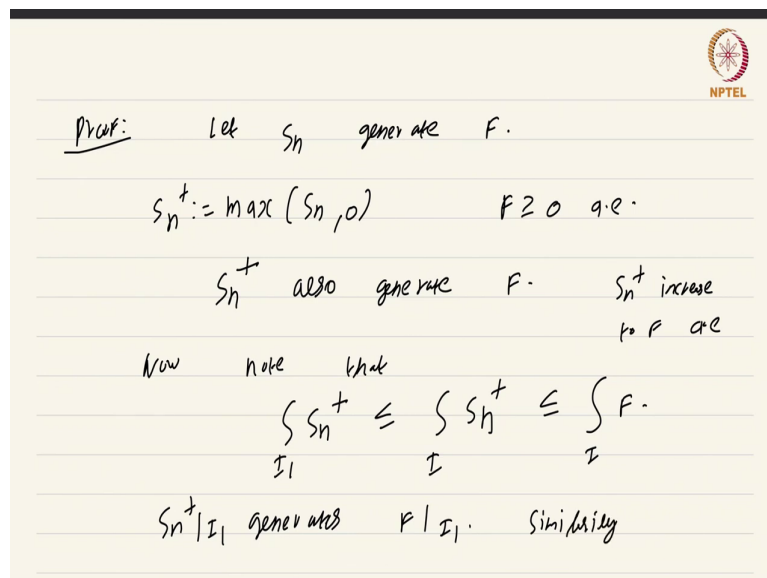 NPTEL
Proof: Let Sn generate F.
Sn⁺ := max (Sn, 0) F ≥ 0 a.e.
Sn⁺ also generate F. Sn⁺ increase
to F a.e
Now note that
∫_{I1} Sn⁺ ≤ ∫_{I} Sn⁺ ≤ ∫_{I} F.
Sn⁺|I1 generates F|I1. Similarly